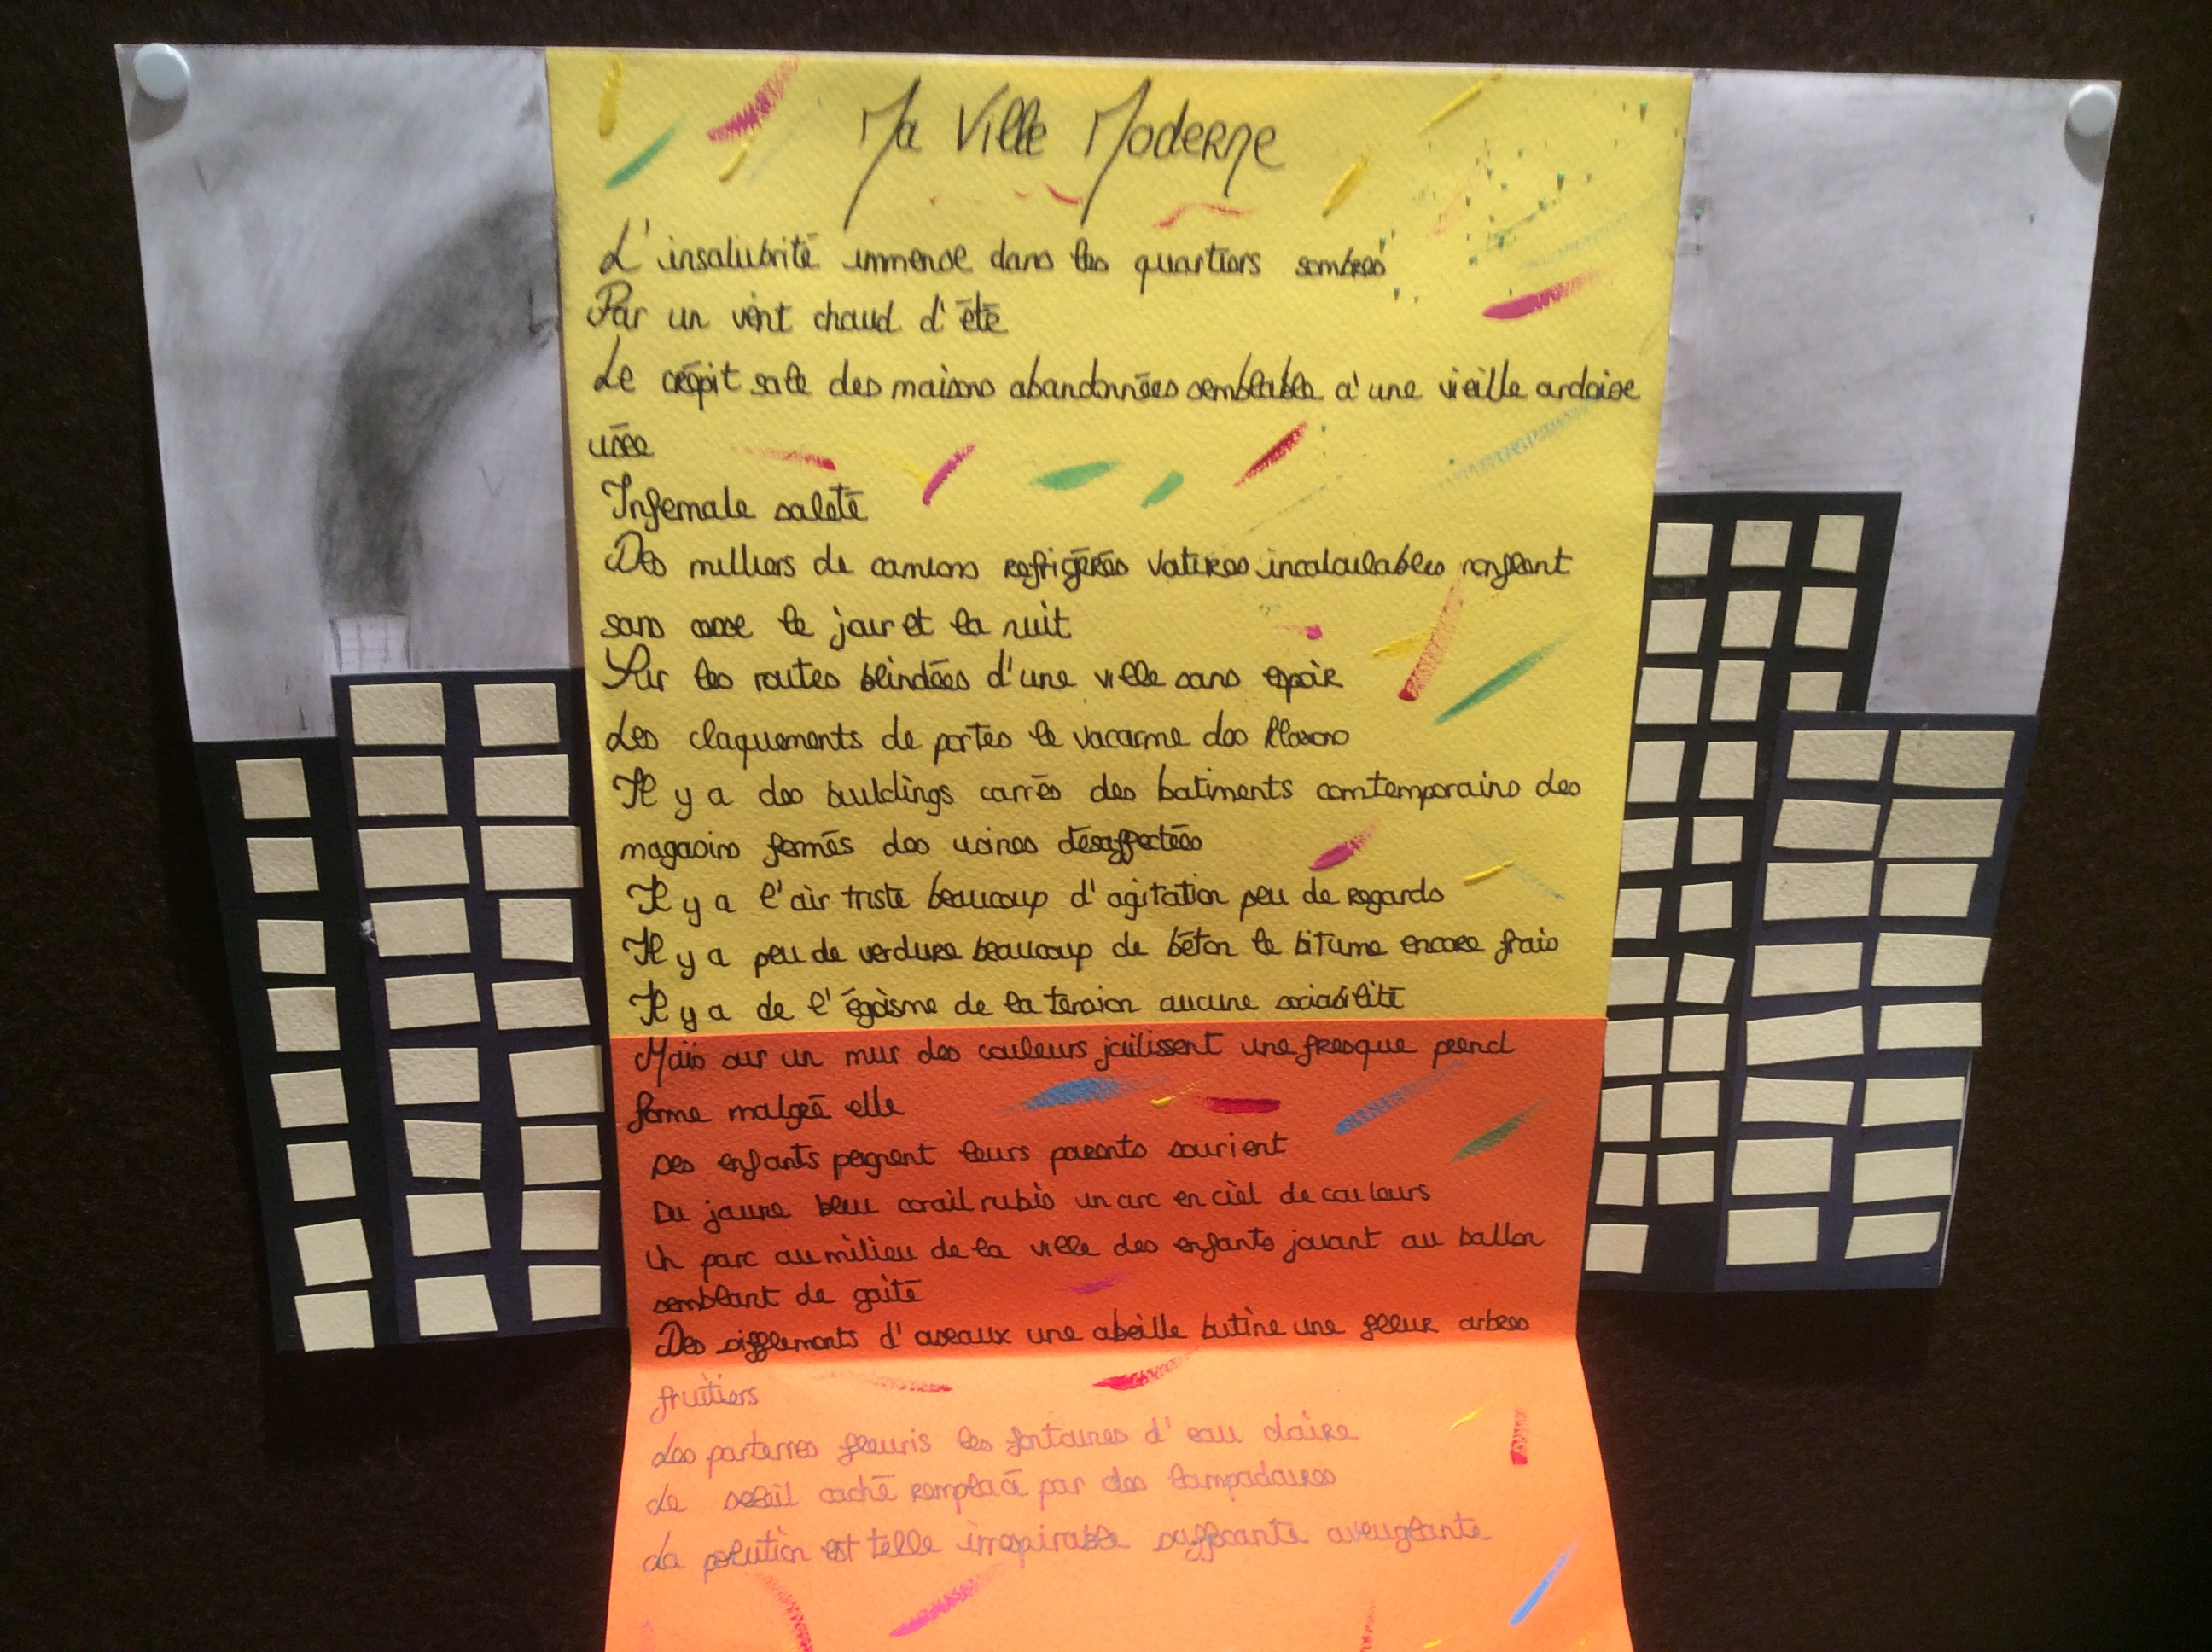 Ma Ville Moderne
L'insalubrité immense dans les quartiers sombres
Par un vent chaud d'été
Le crépit sale des maisons abandonnées semblable a' une vieille ardoise
usée
Infernale saleté
Des milliers de camions réfrigérés voitures incalculables ronflent
sans cesse le jour et la nuit
Sur les routes blindées d'une ville sans espoir
Les claquements de portes le vacarme des klaxons
Il y a des buildings carrés des batiments comtemporains des
magasins fermés des usines désaffectées
Il y a l'air triste beaucoup d'agitation peu de regards
Il y a peu de verdure beaucoup de béton le bitume encore frais
Il y a de l'égoïsme de la tension aucune sociabilité
Mais sur un mur des couleurs jaillissent une fresque prend
forme malgré elle
Des enfants peignent leurs parents sourient
Du jaune bleu corail rubis un arc en ciel de couleurs
Un parc au milieu de la ville des enfants jouant au ballon
semblant de gaité
Des sifflements d'oiseaux une abeille butine une fleur arbres
fruitiers
Les parterres fleuris les fontaines d'eau claire
Le soleil caché remplacé par des lampadaires
La polution est telle irrespirable suffocante aveuglante